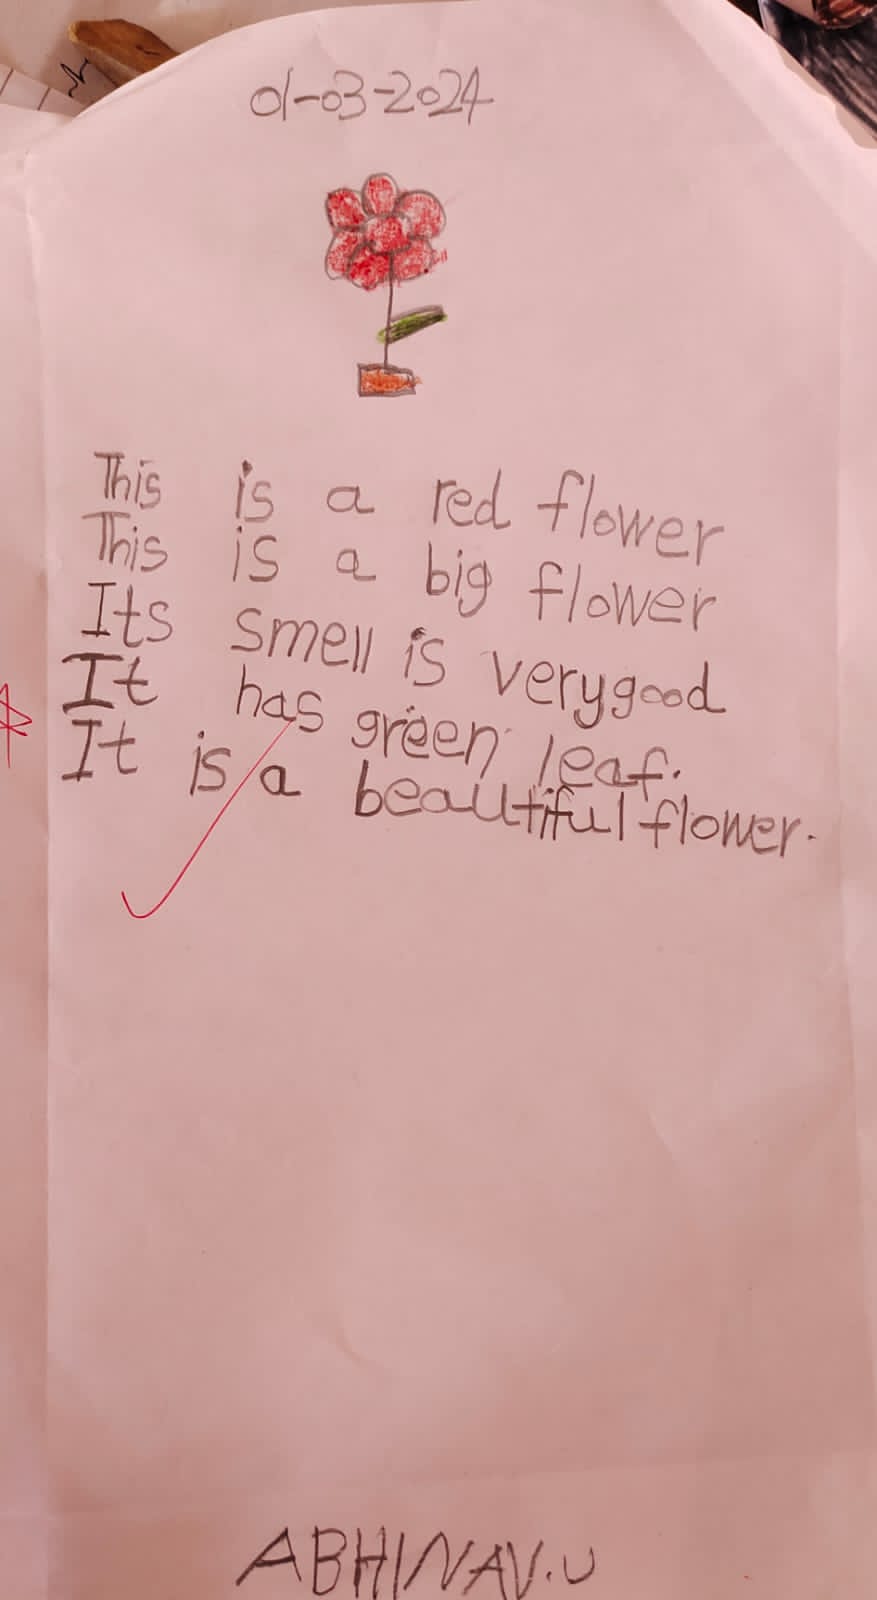 01-03-2024
This is a red flower
This is a big flower
Its smell is verygood
It has green leaf.
It is a beautiful flower.
ABHINAV.U